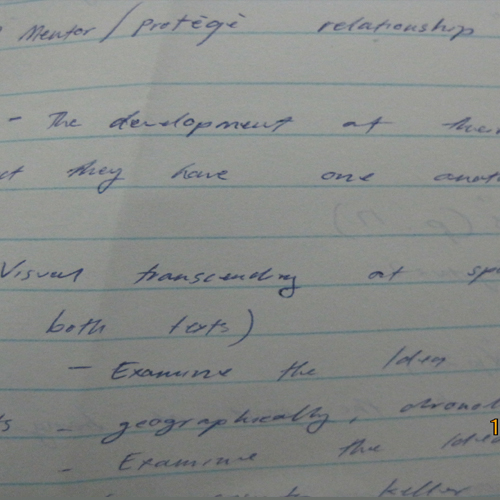 Mentor / Protégé relationship
- The development of their
they have one
Visual transcending of
both texts)
- Examine the Idea
- geographically,
- Examine the Idea
keller
1